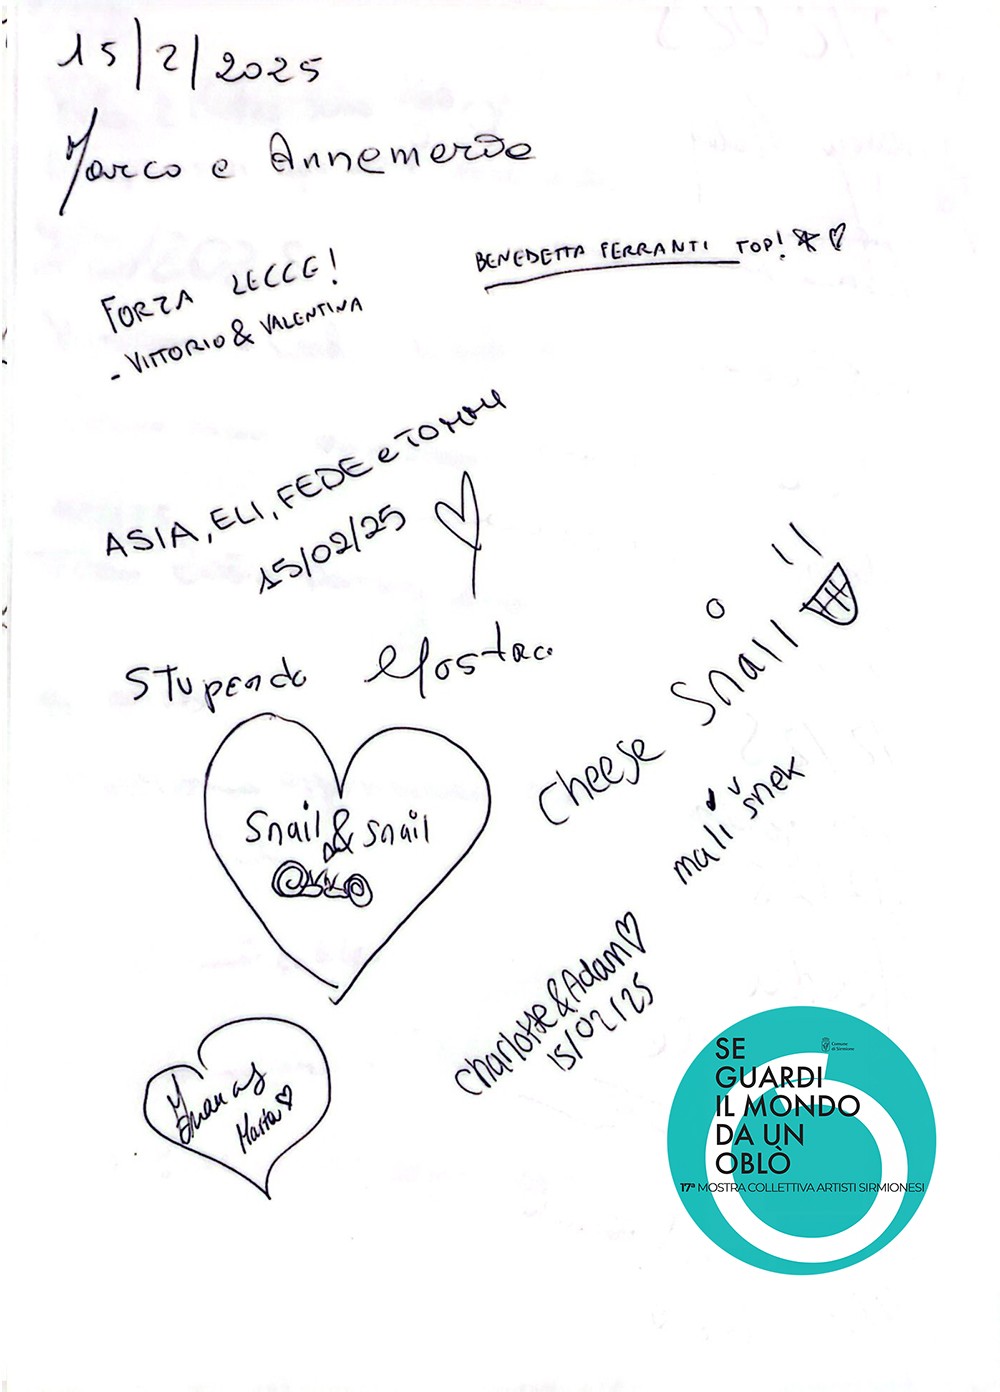 15/2/2025
Marco e Annemerde
FORZA LECCE!
- VITTORIO & VALENTINA
BENEDETTA FERRANTI TOP!
ASIA, ELI, FEDE e TOMMY
15/02/25
STUPENDO Mostra
Cheese Snail
mali šnek
Snail & Snail
Charlotte & Adam
15/02/25
Maria
SE
GUARDI
IL MONDO
DA UN
OBLÒ
Comune
di Sirmione
17ª MOSTRA COLLETTIVA ARTISTI SIRMIONESI